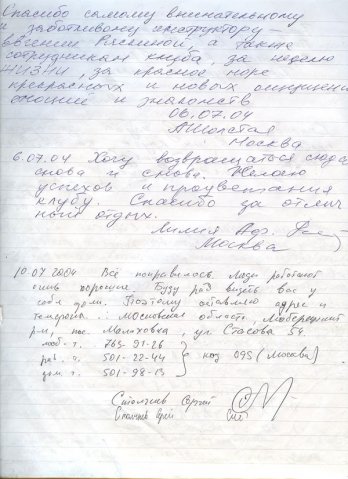 Спасибо самому внимательному
и заботливому инструктору –
Евгении, а также
сотрудникам клуба, за неделю
ЖИЗНИ, за красное море
прекрасных и новых ощущений
эмоций и знакомств
06.07.04
А Толстая
Москва
6.07.04 Хочу возвращаться сюда
снова и снова. Желаю
успехов и процветания
клубу. Спасибо за отлич
ный отдых.
Лилия
Москва
10.07.2004 Всё понравилось. Люди работают
очень хорошие. Буду рад видеть вас у
себя дома. Поэтому оставляю адрес и
телефоны: московская область, Люберецкий
р-н, пос. Малаховка, ул Стасова 54
моб. т. 765-91-26
раб. т. 501-22-44 код 095 (Москва)
дом т. 501-98-13
Сергей